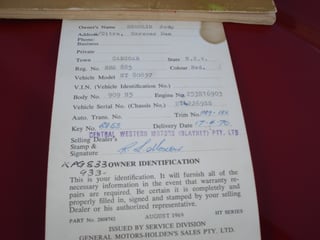 Owner's Name
Address
Phone/
Business
Private
Town CANDOAR State N.S.W.
Reg. No. Colour Red.
Vehicle Model HT 80837
V.I.N. (Vehicle Identification No.)
Body No. 909 B3 Engine No.
Vehicle Serial No. (Chassis No.)
Auto. Trans. No. Trim No.
Key No. Delivery Date 17-4-70
Selling Dealer's CENTRAL WESTERN MOTORS (BLAYNEY) PTY. LTD
Stamp &
Signature
OWNER IDENTIFICATION
933-
This is your identification. It will furnish all of the
necessary information in the event that warranty re-
pairs are required. Be certain it is completely and
properly filled in, signed and stamped by your selling
Dealer or his authorized representative.
PART No. 2808742 AUGUST 1969 HT SERIES
ISSUED BY SERVICE DIVISION
GENERAL MOTORS-HOLDEN'S SALES PTY. LTD.